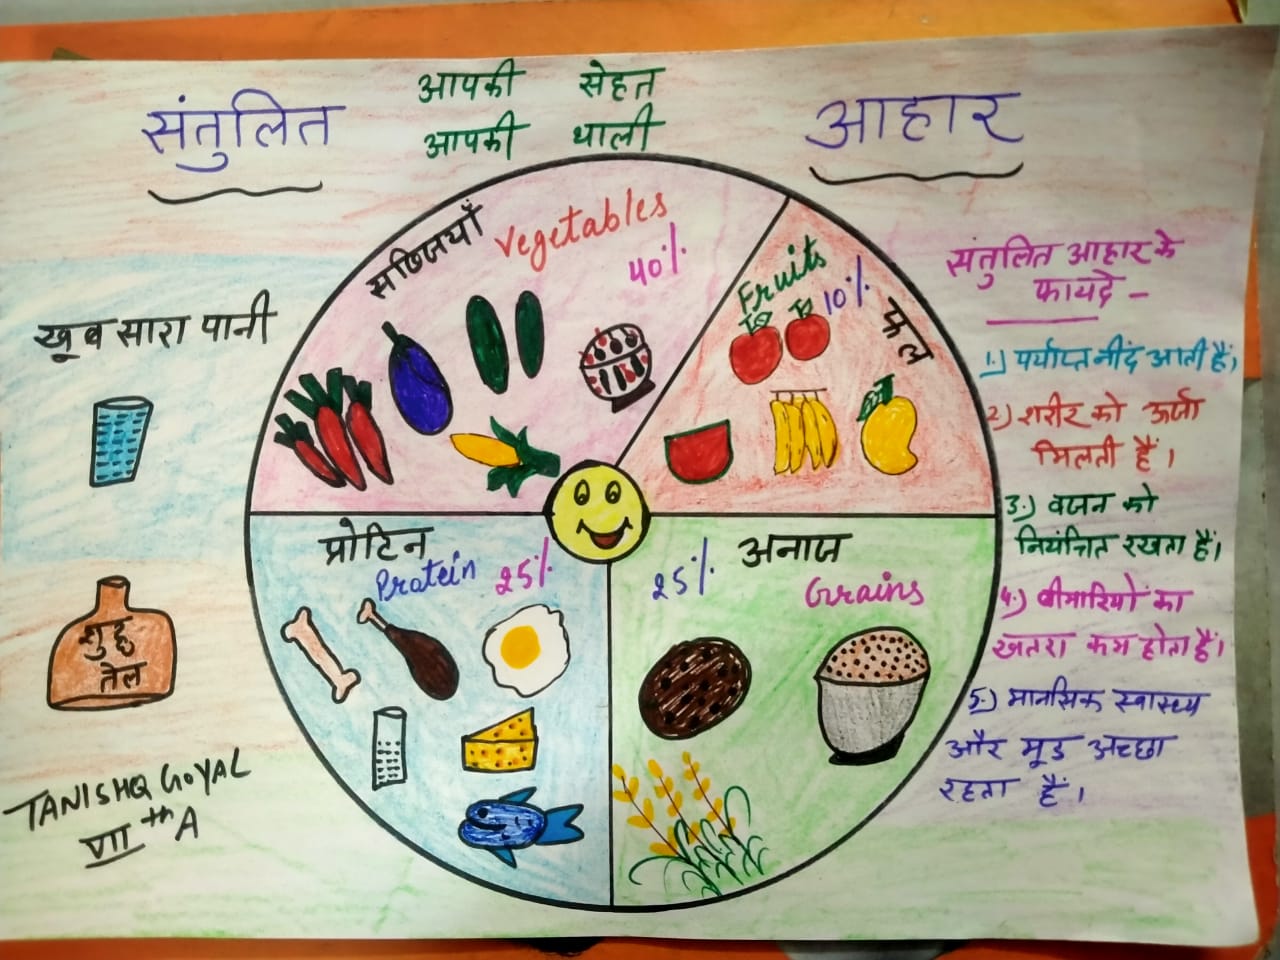 संतुलित
आपकी सेहत
आपकी थाली
आहार
सब्ज़ियाँ
Vegetables
40%
Fruits
10%
फल
खूब सारा पानी
शुद्ध
तेल
प्रोटिन
Protein
25%
25%
अनाज
Grains
संतुलित आहार के
फायदे -
1.) पर्याप्त नींद आती हैं।
2.) शरीर को ऊर्जा
मिलती हैं।
3.) वजन को
नियंत्रित रखता हैं।
4.) बीमारियों का
खतरा कम होता हैं।
5.) मानसिक स्वास्थ्य
और मूड अच्छा
रहता हैं।
TANISHQ GOYAL
VII th A